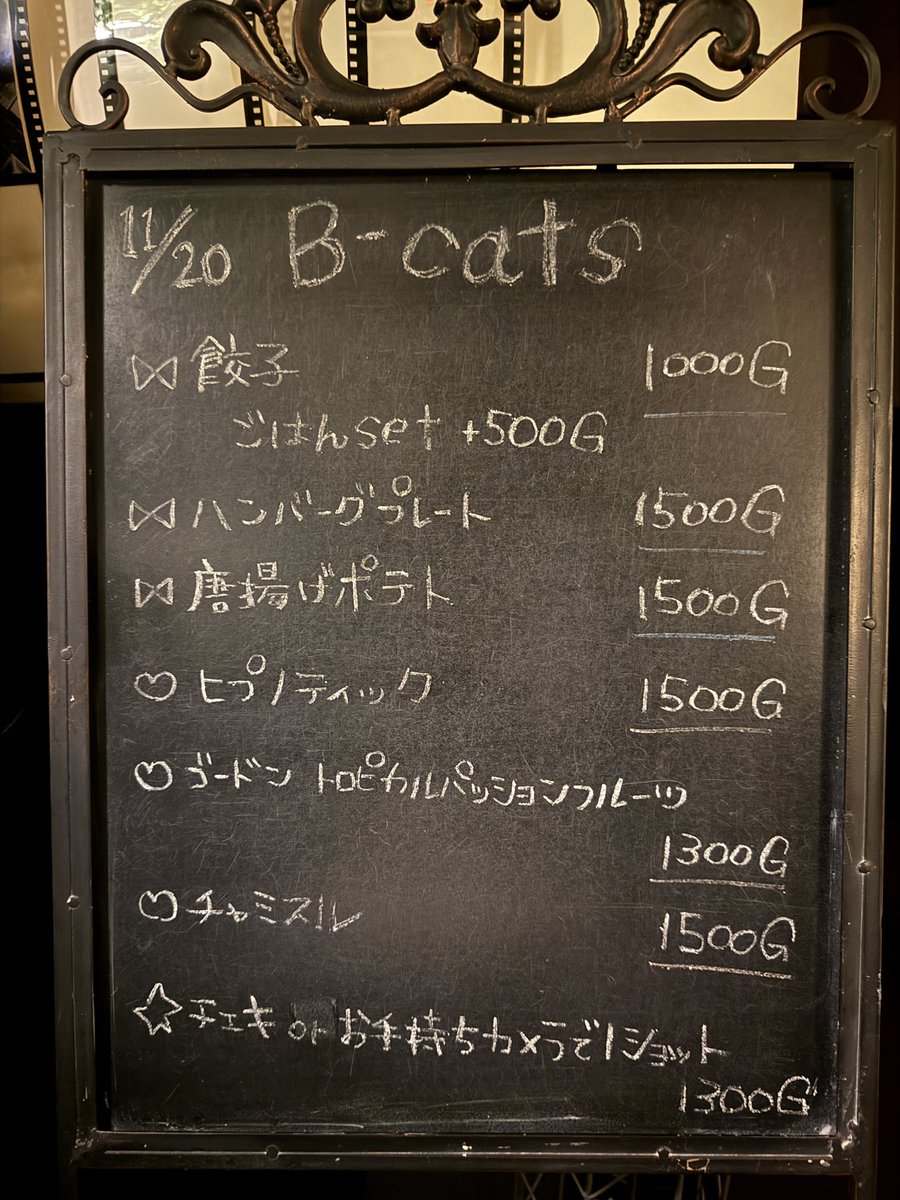 11/20 B-cats
餃子 1000G
ごはんset +500G
ハンバーグプレート 1500G
唐揚げポテト 1500G
ヒプノティック 1500G
ゴードン トロピカルパッションフルーツ
1300G
チャミスル 1500G
☆チェキ or お手持ちカメラで1ショット
1300G